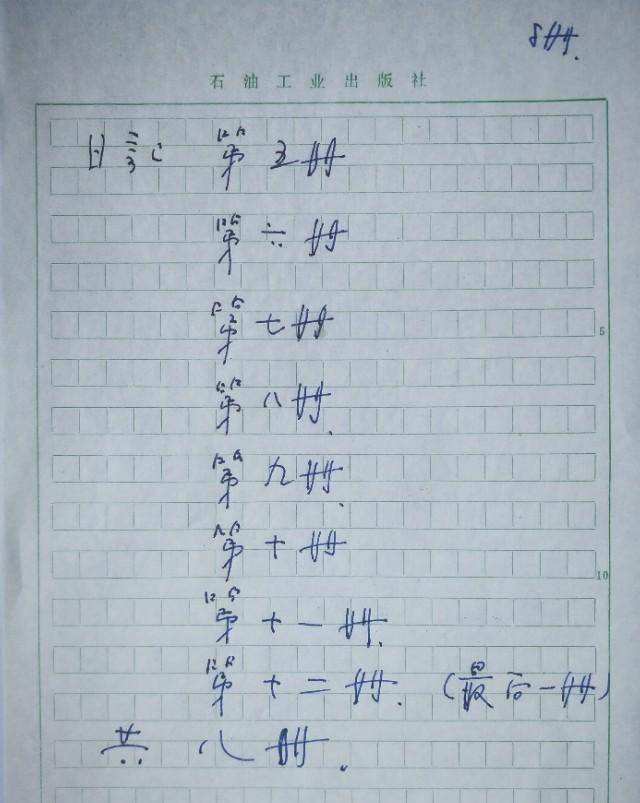 8册.
石油工业出版社
日记 第五册
第六册
第七册
5
第八册.
第九册.
第十册
10
第十一册.
第十二册. (最后一册)
共 八册.